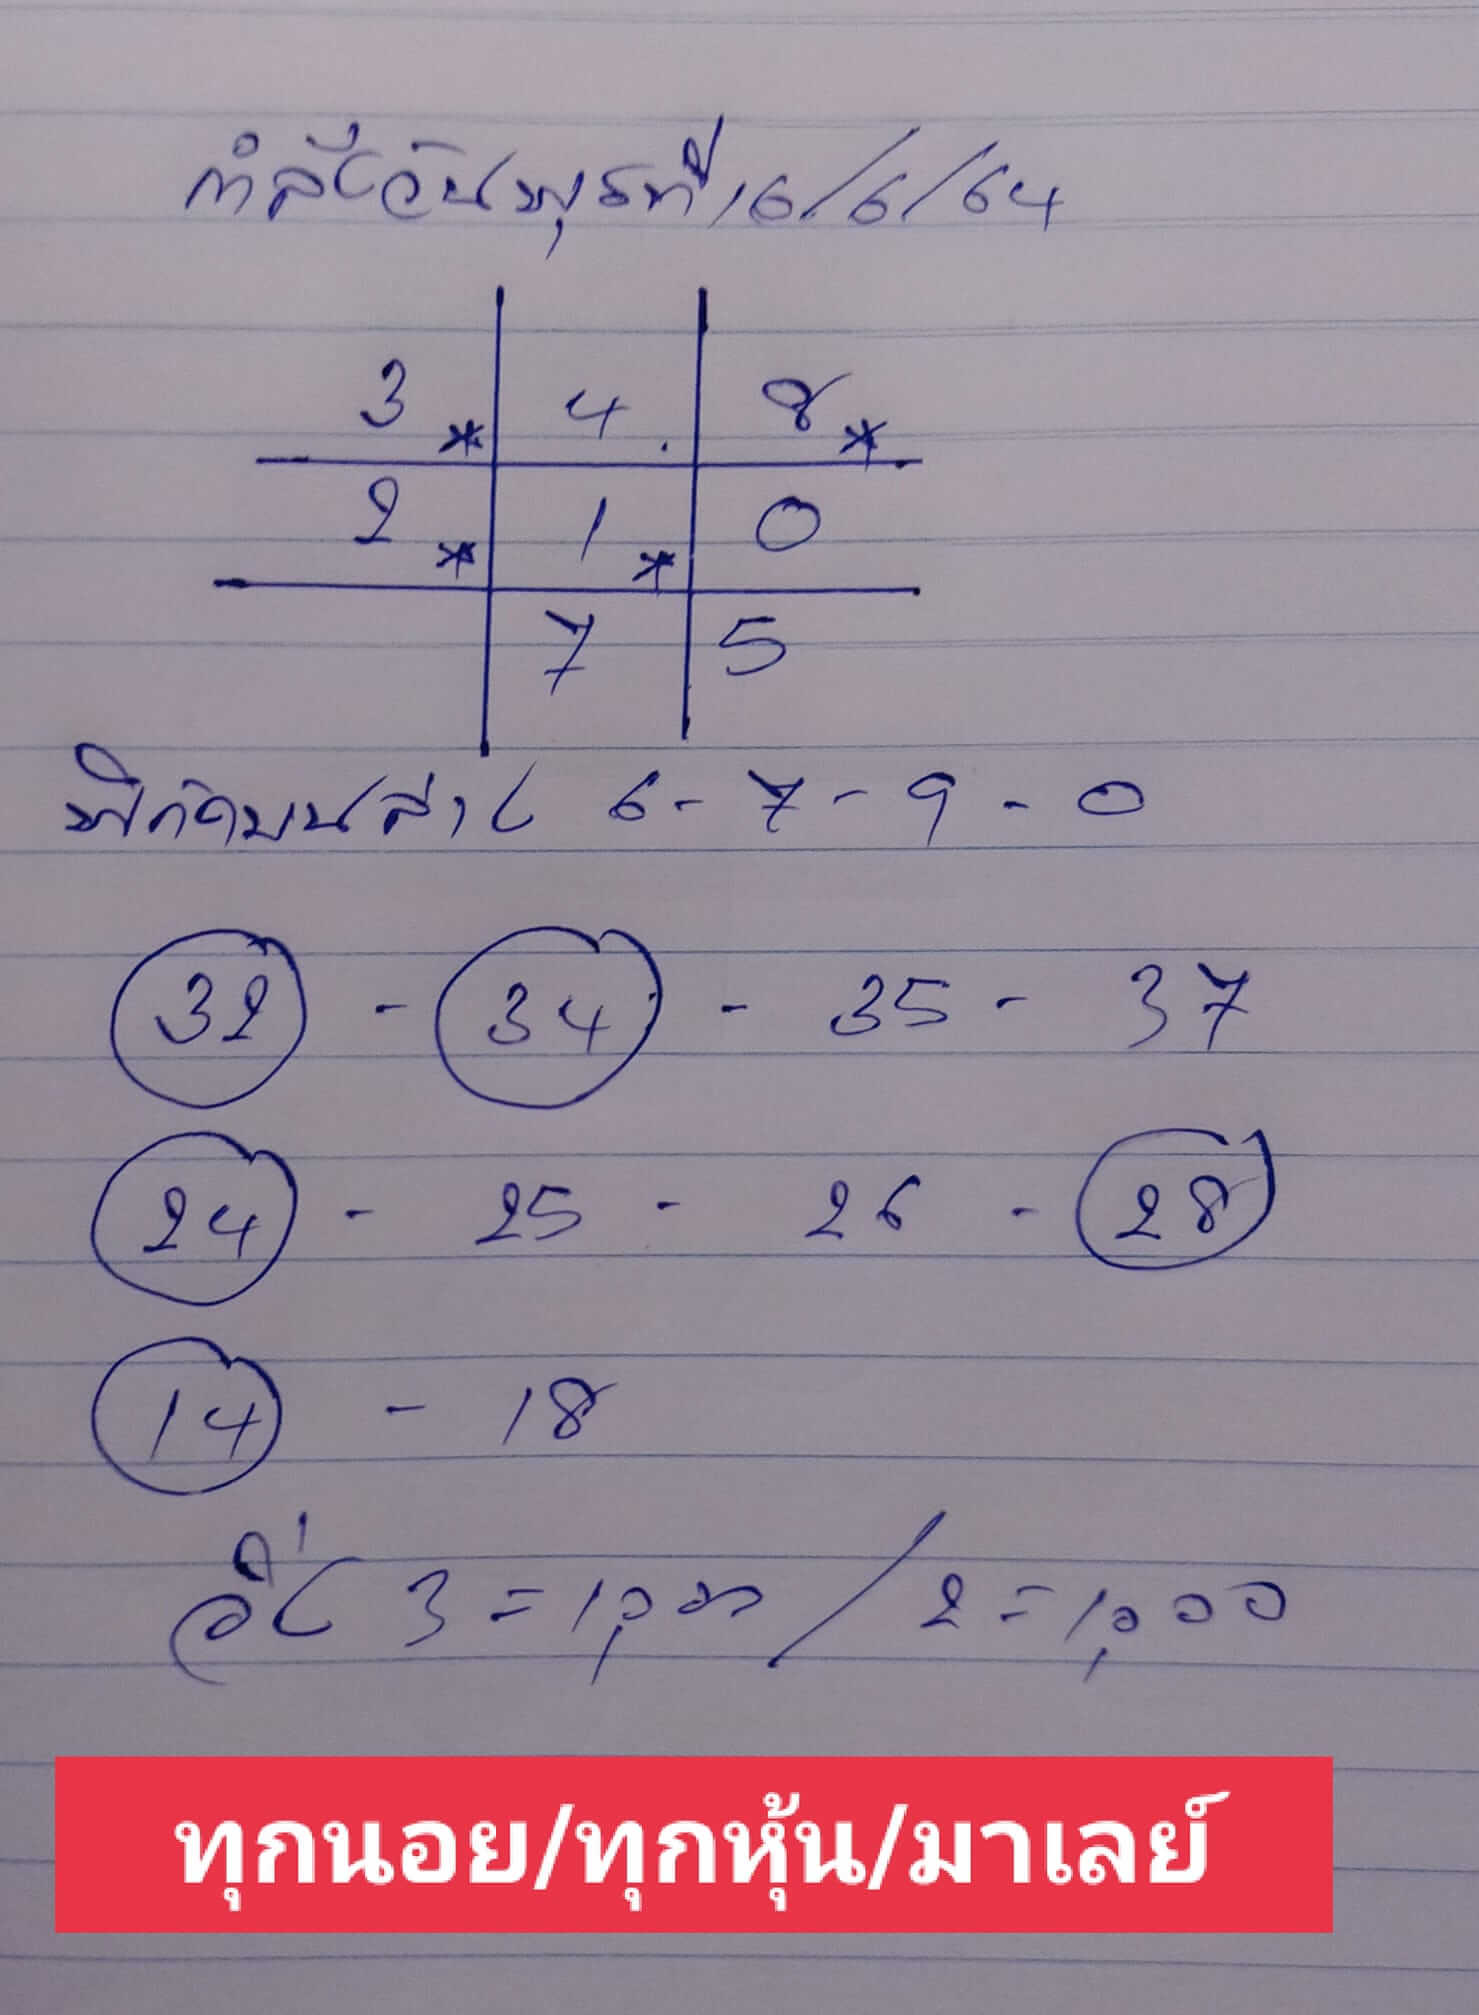 กำลังวันพุธที่ 16/6/64
3* 4. 8*
2* 1* 0
7 5
พิกัดบนล่าง 6-7-9-0
32 - 34 - 35 - 37
24 - 25 - 26 - 28
14 - 18
วิ่ง 3 = 1,000 / 2 = 1,000
ทุกนอย/ทุกหุ้น/มาเลย์